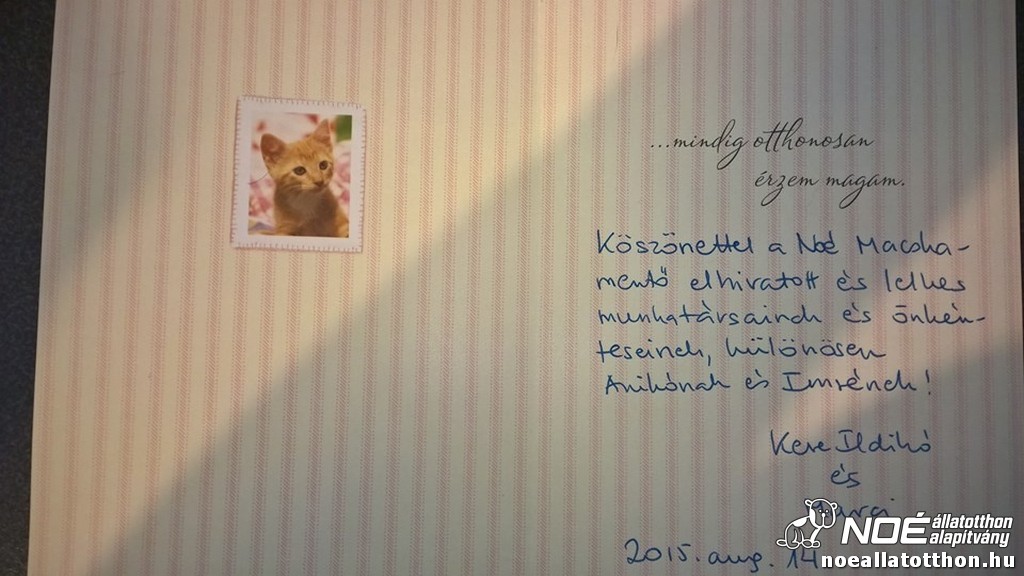 ...mindig otthonosan
érzem magam.
Köszönettel a Noé Macska-
mentő elhivatott és lelkes
munkatársainak és önkén-
teseinek, különösen
Anikónak és Imrének!
Ildikó
és
2015. aug. 14
NOÉ állatotthon
alapítvány
noeallatotthon.hu